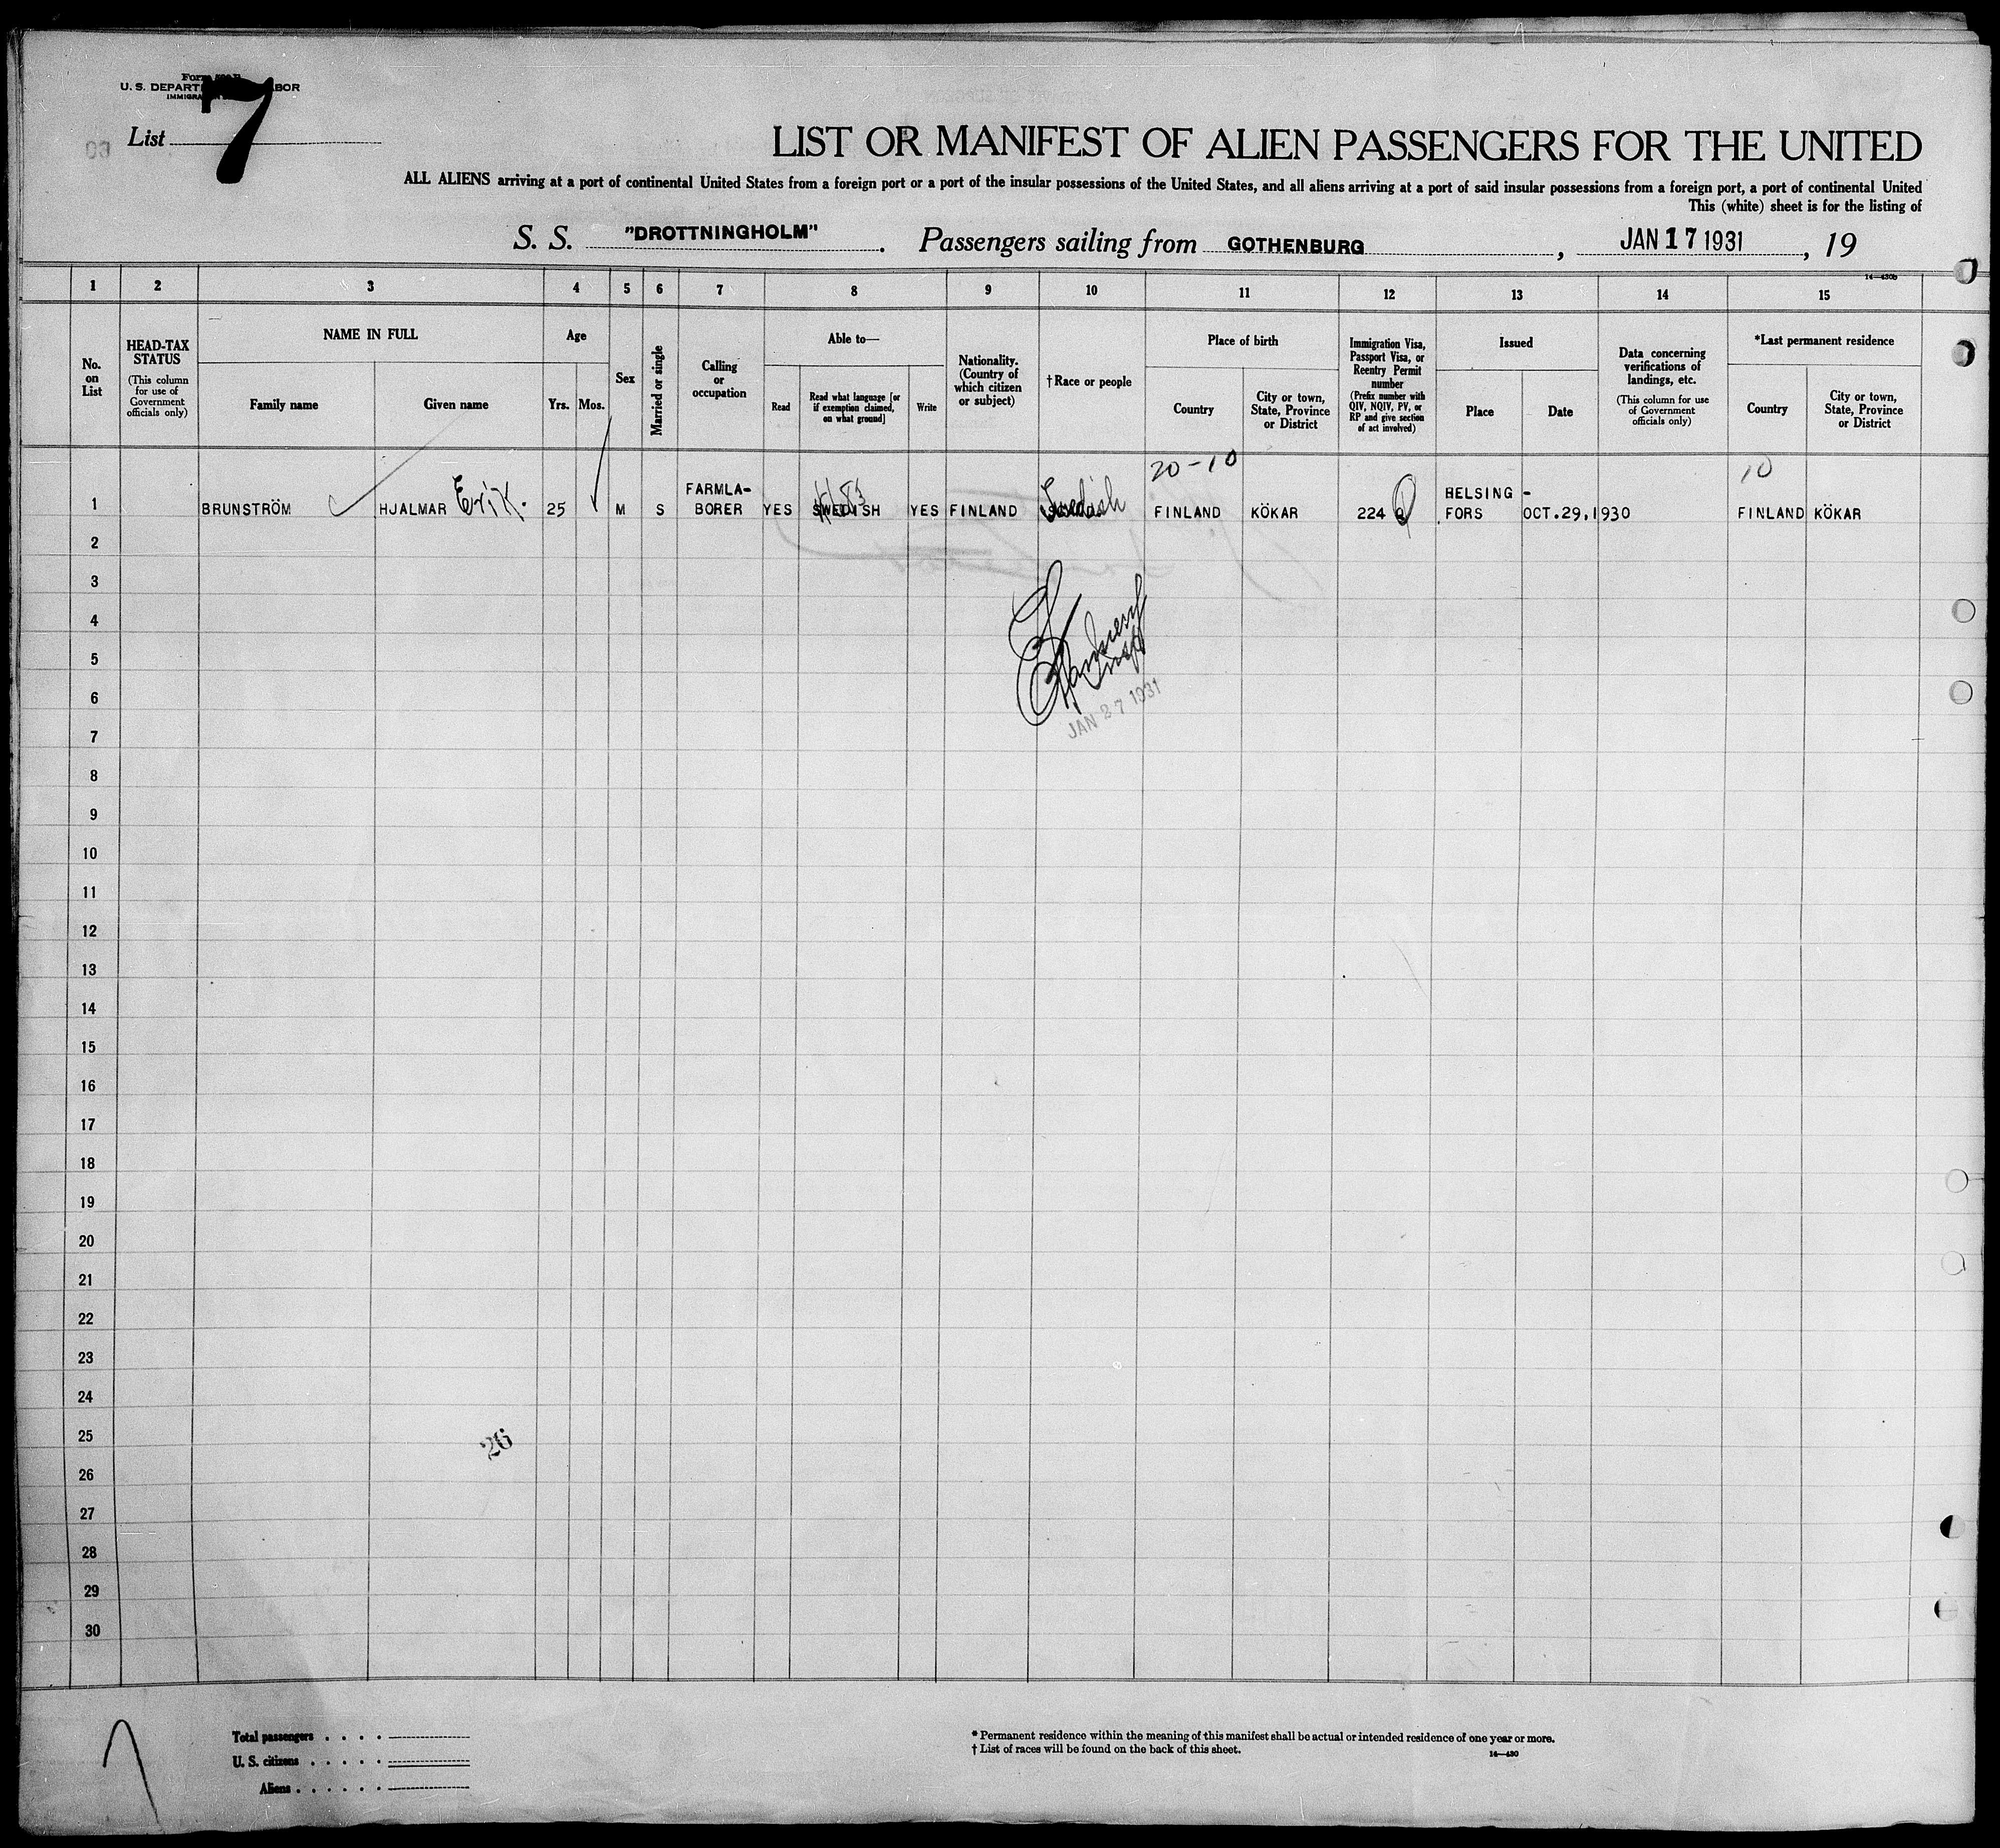 U. S. DEPART
List 7
LIST OR MANIFEST OF ALIEN PASSENGERS FOR THE UNITED
ALL ALIENS arriving at a port of continental United States from a foreign port or a port of the insular possessions of the United States, and all aliens arriving at a port of said insular possessions from a foreign port, a port of continental United
This (white) sheet is for the listing of
S. S. "DROTTNINGHOLM". Passengers sailing from GOTHENBURG, JAN 17 1931, 19
1 2 3 4 5 6 7 8 9 10 11 12 13 14 15
No. on List
HEAD-TAX STATUS
(This column for use of Government officials only)
NAME IN FULL
Family name
Given name
Age
Yrs.
Mos.
Sex
Married or single
Calling or occupation
Able to—
Read
Read what language [or if exemption claimed, on what ground]
Write
Nationality. (Country of which citizen or subject)
† Race or people
Place of birth
Country
City or town, State, Province or District
Immigration Visa, Passport Visa, or Reentry Permit number
(Prefix number with QIV, NQIV, PV, or RP and give section of act involved)
Issued
Place
Date
Data concerning verifications of landings, etc.
(This column for use of Government officials only)
*Last permanent residence
Country
City or town, State, Province or District
20-10
10
1 BRUNSTRÖM HJALMAR Erik. 25 M S FARMLA-BORER YES SWEDISH YES FINLAND Swedish FINLAND KÖKAR 224 HELSING-FORS OCT.29,1930 FINLAND KÖKAR
2
3
4
5
6
JAN 27 1931
7
8
9
10
11
12
13
14
15
16
17
18
19
20
21
22
23
24
25
26
26
27
28
29
30
Total passengers . . . .
U. S. citizens . . . . .
Aliens . . . . . .
* Permanent residence within the meaning of this manifest shall be actual or intended residence of one year or more.
† List of races will be found on the back of this sheet.
14—430